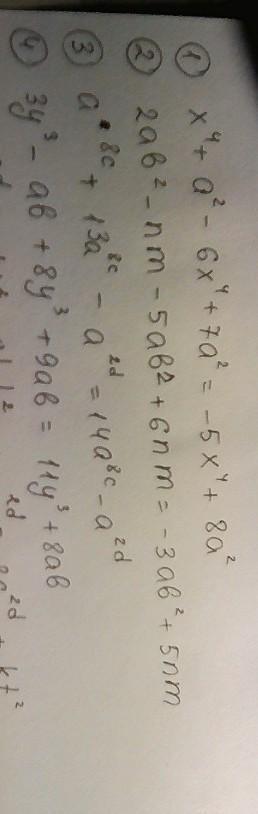 ① x⁴ + a² - 6x⁴ + 7a² = -5x⁴ + 8a²
② 2ab² - nm - 5ab² + 6nm = -3ab² + 5nm
③ a⁸ᶜ + 13a⁸ᶜ - a²ᵈ = 14a⁸ᶜ - a²ᵈ
④ 3y³ - ab + 8y³ + 9ab = 11y³ + 8ab